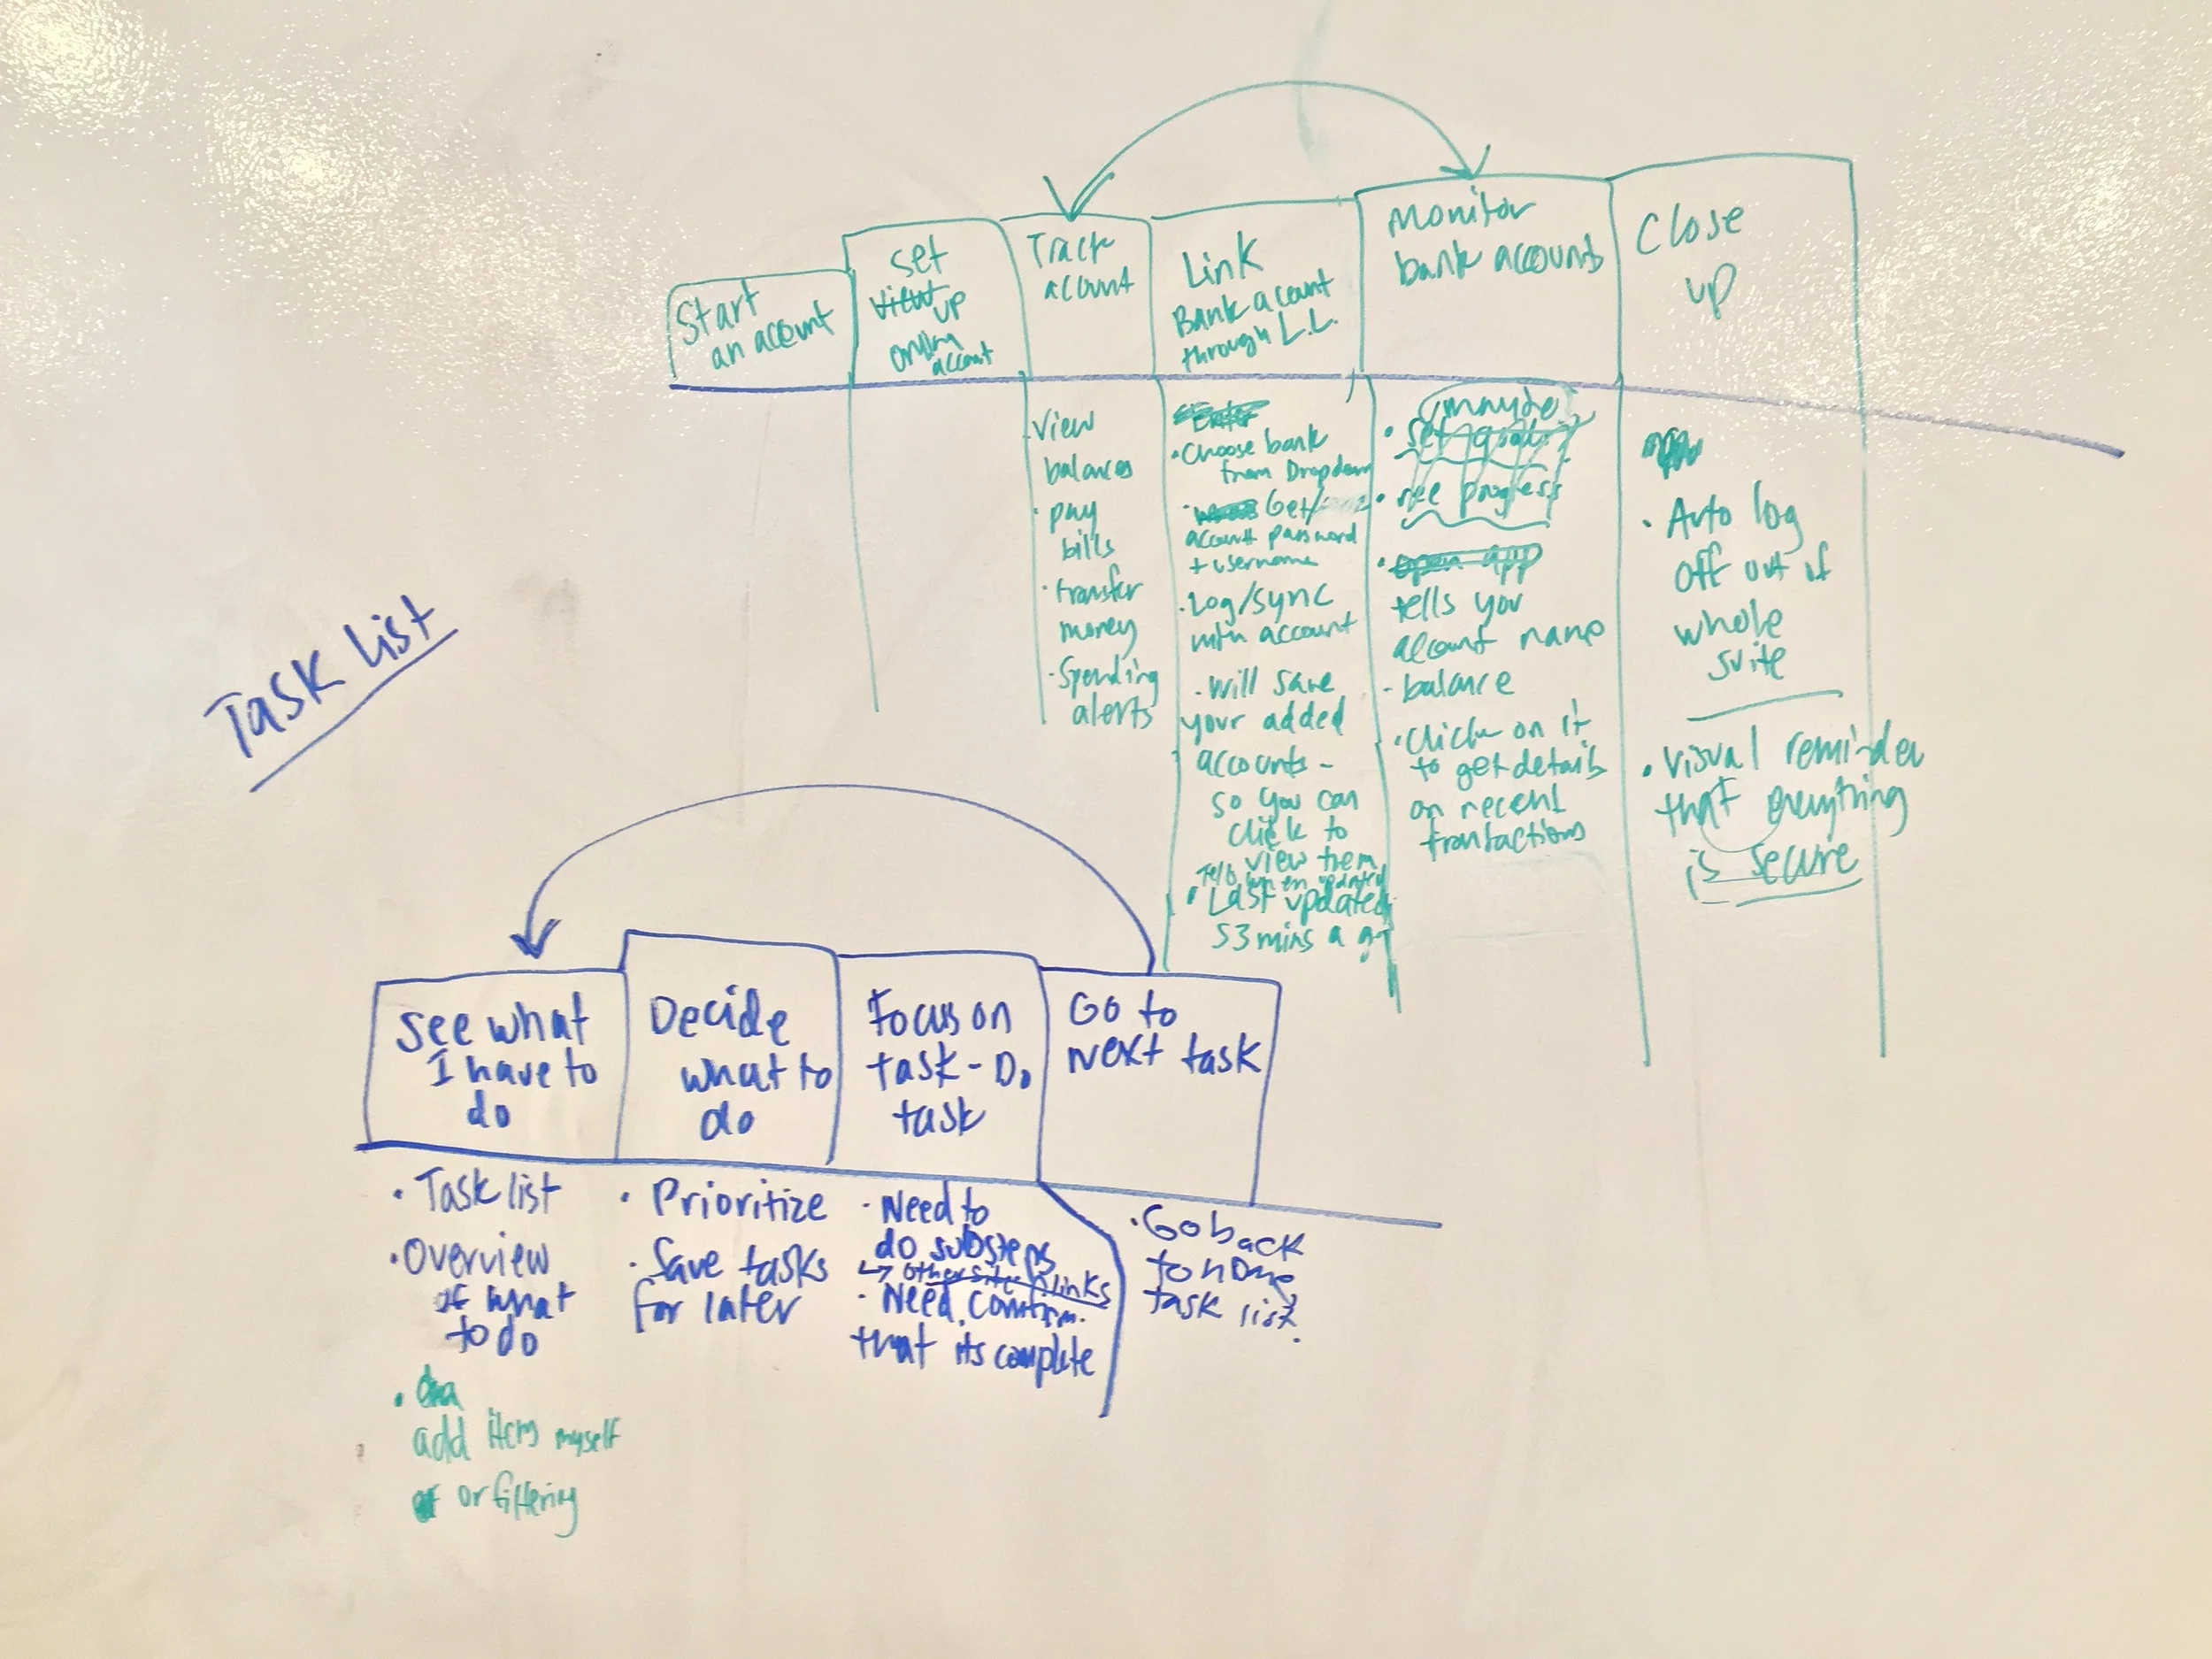 Start
an account
set
up
online
account
Track
account
Link
Bank acount
through L.L.
Monitor
bank accounts
Close
up
View
balances
· pay
bills
· transfer
money
· Spending
alerts
· Choose bank
from Dropdown
Get/
account password
+ username
· Log/sync
with account
· will save
your added
accounts -
so you can
click to
view them
Tells when updated
· Last updated
53 mins ago
maybe
· set goals
· see progress
· open app
tells you
account name
- balance
· Click on it
to get details
on recent
transactions
· Auto log
off out of
whole
suite
· visual reminder
that everything
is secure
Task List
See what
I have to
do
Decide
what to
do
Focus on
task - Do
task
Go to
next task
· Task list
· Overview
of what
to do
·
add items myself
or filtering
· Prioritize
· Save tasks
for later
· Need to
do substeps
↳ other site links
· Need confirm.
that its complete
· Go back
to home
task list.